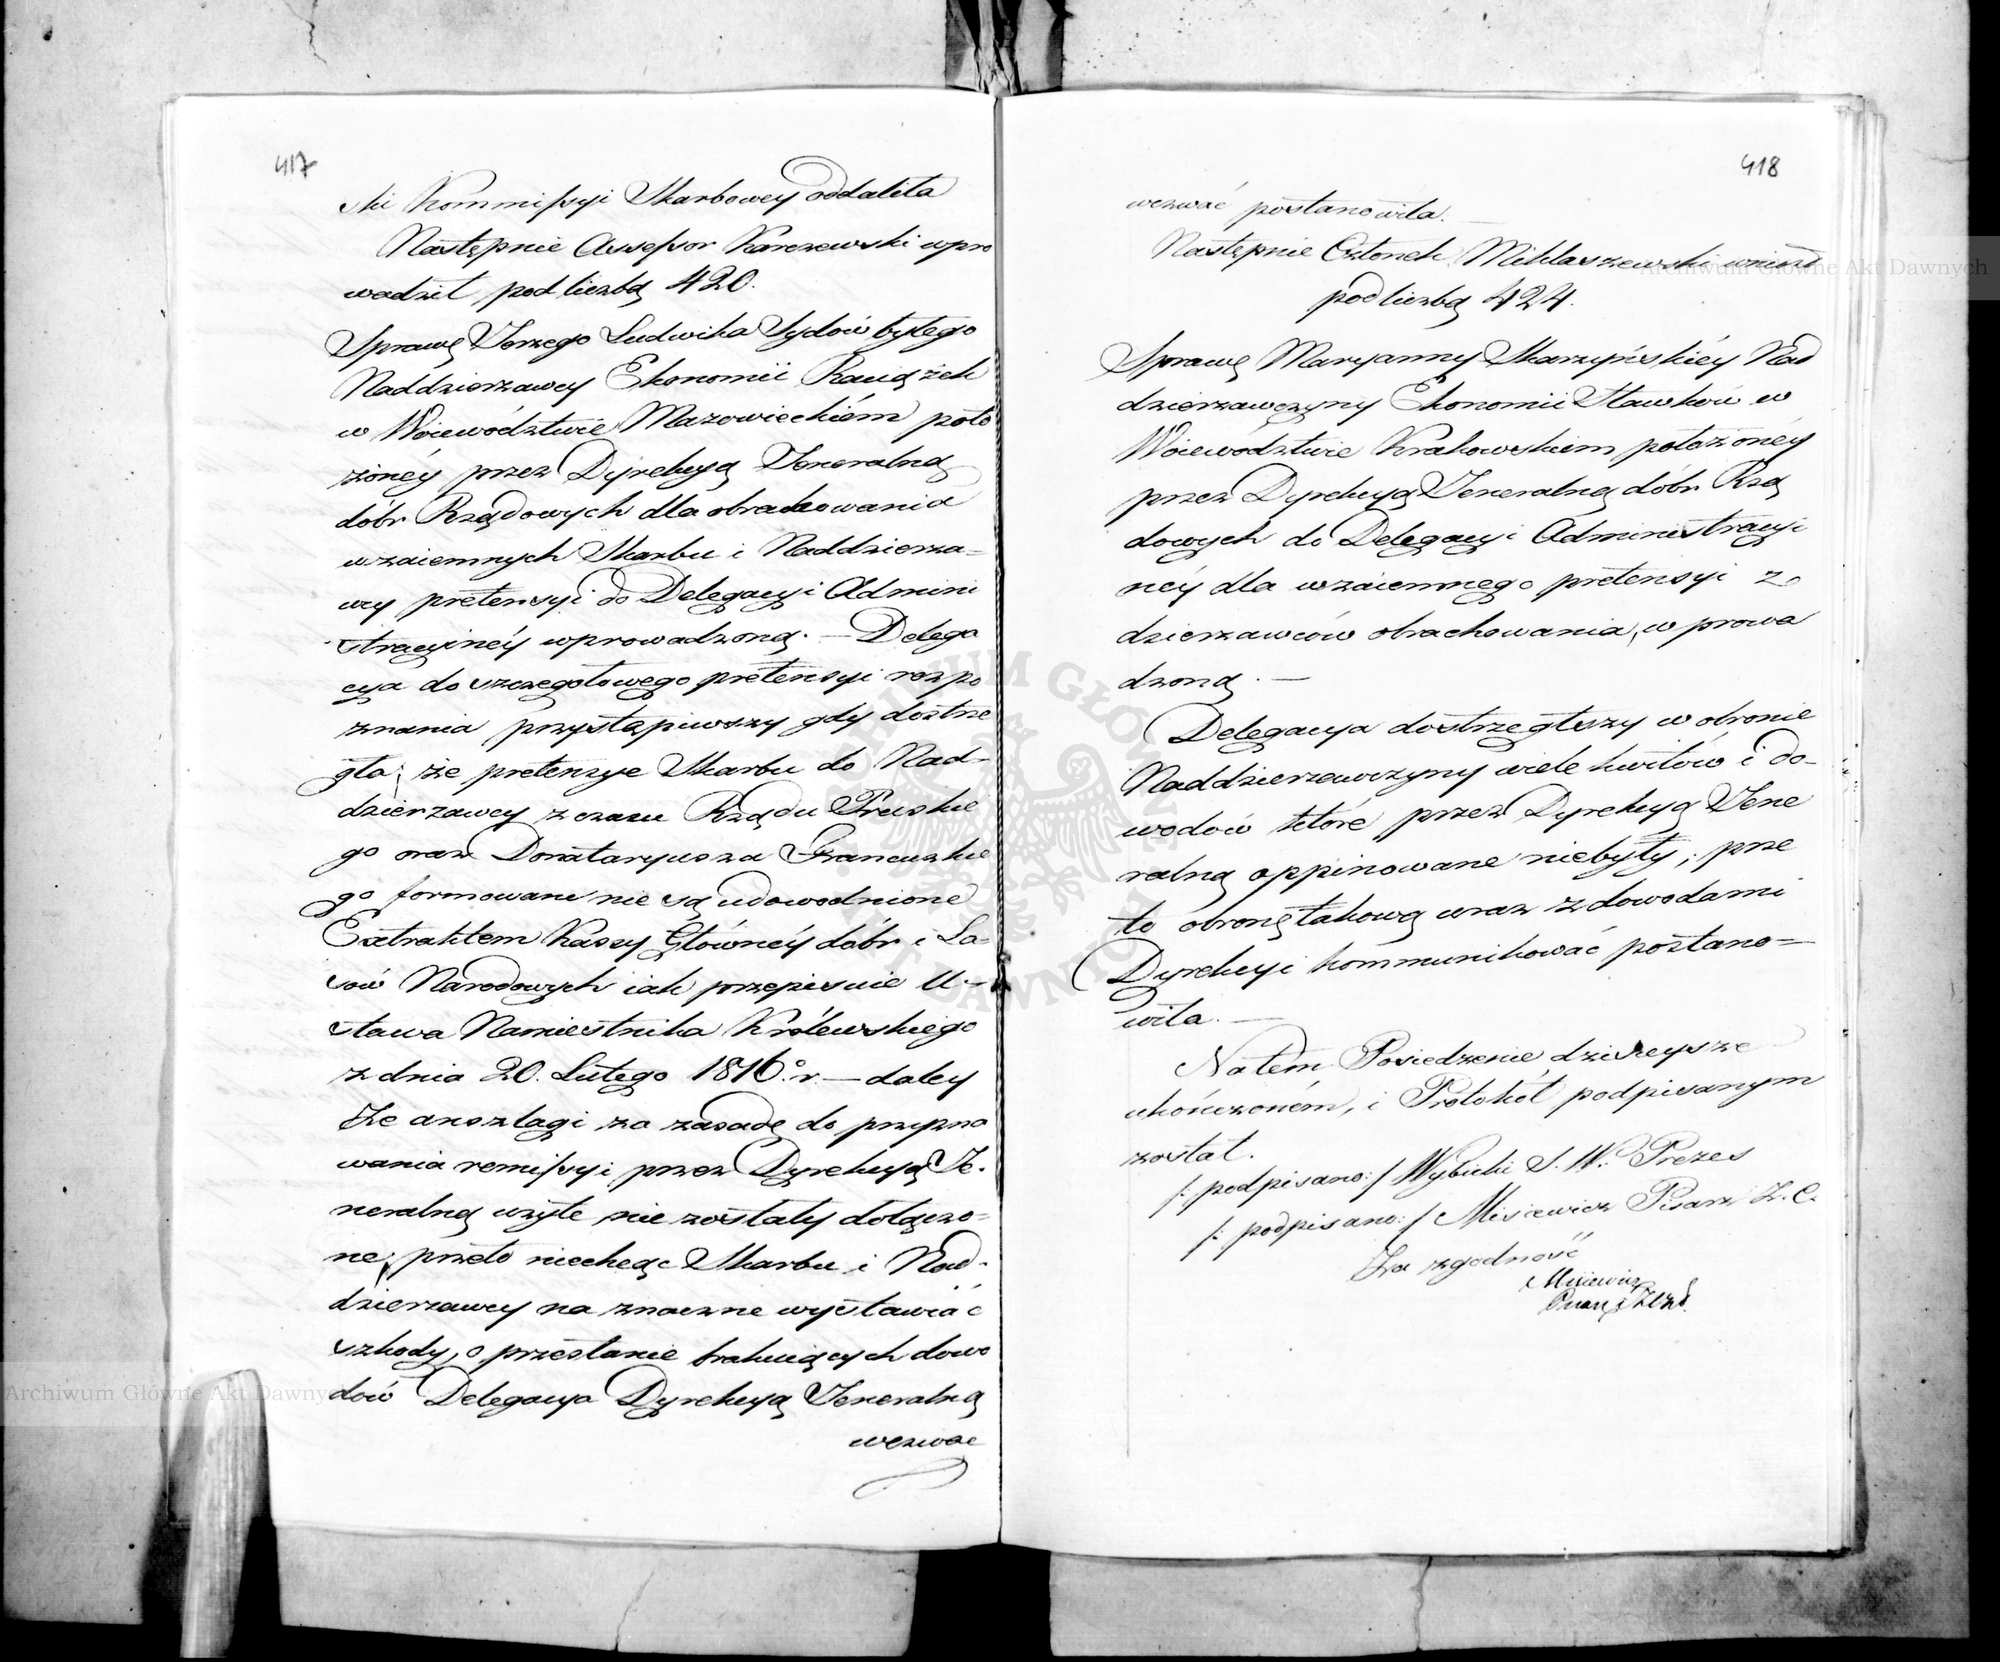 417
ski Kommissyi Skarbowey oddaliła
Następnie Assessor Karczewski wpro
wadził pod liczbą 420.
Sprawę Jerzego Ludwika Sydów byłego
Naddzierzawcy Ekonomii Raciążek
w Woiewództwie Mazowieckiém poło
żonéy przez Dyrekcyą Jeneralną
dóbr Rządowych dla obrachowania
wzaiemnych Skarbu i Naddzierza-
wcy pretensyi do Delegacyi Admini
stracyinéy wprowadzoną. — Delega
cya do szczegółowego pretensyi rozpo
znania przystąpiwszy gdy dostrze
gła; że pretensye Skarbu do Nad-
dzierzawcy z czasu Rządu Pruskie
go oraz Donataryusza Francuzkie
go formowane nie są udowodnione
Extraktem Kassy Główney dóbr i La-
sów Narodowych iak przepisuie U-
stawa Namiestnika Królewskiego
z dnia 20. Lutego 1816.º r. — daley
Że anszlagi za zasadę do przyzna
wania remissyi przez Dyrekcyą Je-
neralną użyte nie zostały dołączo-
ne, przeto niechcąc Skarbu i Nad-
dzierzawcy na znaczne wystawiać
szkody, o przesłanie brakuiących dowo
dów Delegacya Dyrekcyą Jeneralną
wezwać
418
wezwać postanowiła. —
Następnie Członek Miklaszewski wniósł
pod liczbą 424.
Sprawę Maryanny Skarzyńskiéy Nad
dzierzawczyny Ekonomii Sławków w
Woiewództwie Krakowskiem położonéy
przez Dyrekcyą Jeneralną dóbr Rzą
dowych do Delegacyi Administracyi
néy dla wzaiemnego pretensyi z
dzierzawców obrachowania, wprowa
dzoną. —
Delegacya dostrzegłszy w obronie
Naddzierzawczyny wiele kwitów i do-
wodów które przez Dyrekcyą Jene
ralną oppinowane niebyły; prze
to obronę takową wraz z dowodami
Dyrekcyi kommunikować postano-
wiła. —
Na tém Posiedzenie dzisieysze
ukończoném, i Protokół podpisanym
został.
/: podpisano: / Wybicki S. W. Prezes
/: podpisano: / Misiewicz Pisarz
Za zgodność
Misiewicz
Pisarz
Archiwum Główne Akt Dawnych
Archiwum Główne Akt Dawnych
ARCHIWUM GŁÓWNE AKT DAWNYCH